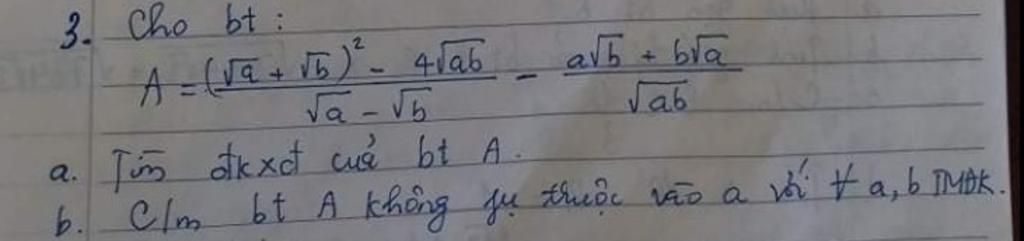 3. Cho bt :
A = (√a + √b)² - 4√ab / √a - √b - a√b + b√a / √ab
a. Tìm đkxđ của bt A.
b. C/m bt A không fụ thuộc vào a với ∀ a, b TMĐK.